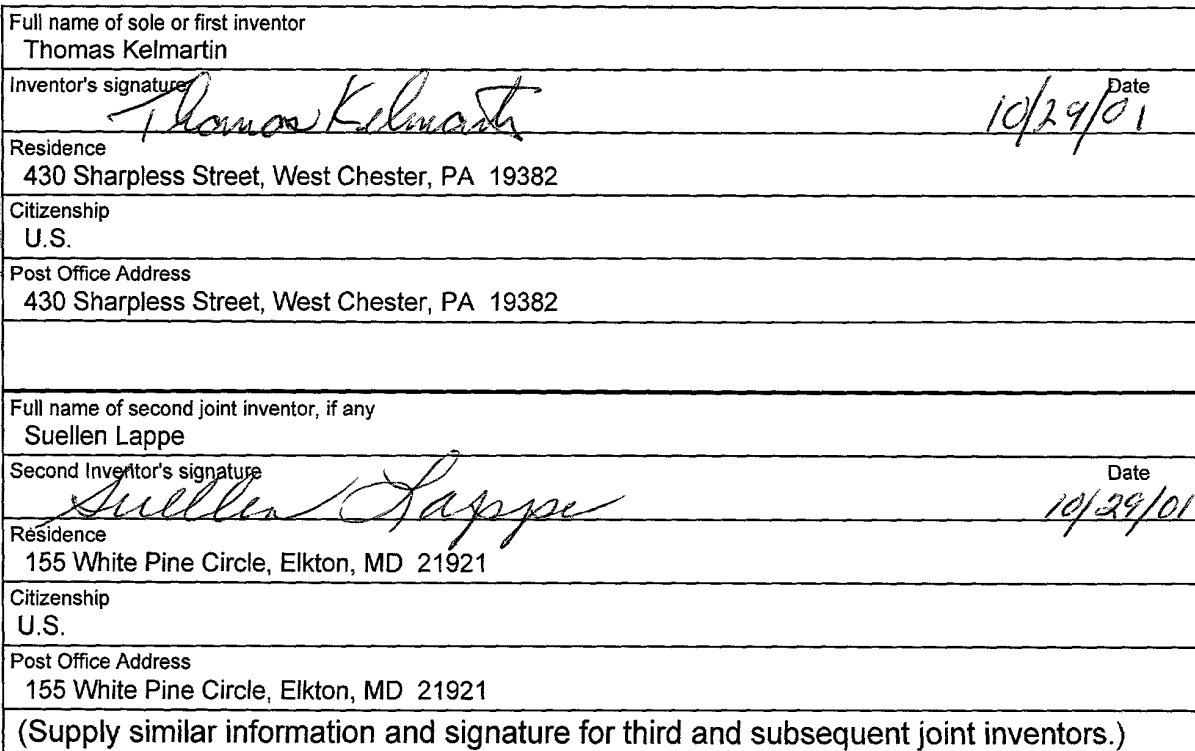 Full name of sole or first inventor
Thomas Kelmartin
Inventor's signature Date
Thomas Kelmartin 10/29/01
Residence
430 Sharpless Street, West Chester, PA 19382
Citizenship
U.S.
Post Office Address
430 Sharpless Street, West Chester, PA 19382
Full name of second joint inventor, if any
Suellen Lappe
Second Inventor's signature Date
Suellen Lappe 10/29/01
Residence
155 White Pine Circle, Elkton, MD 21921
Citizenship
U.S.
Post Office Address
155 White Pine Circle, Elkton, MD 21921
(Supply similar information and signature for third and subsequent joint inventors.)